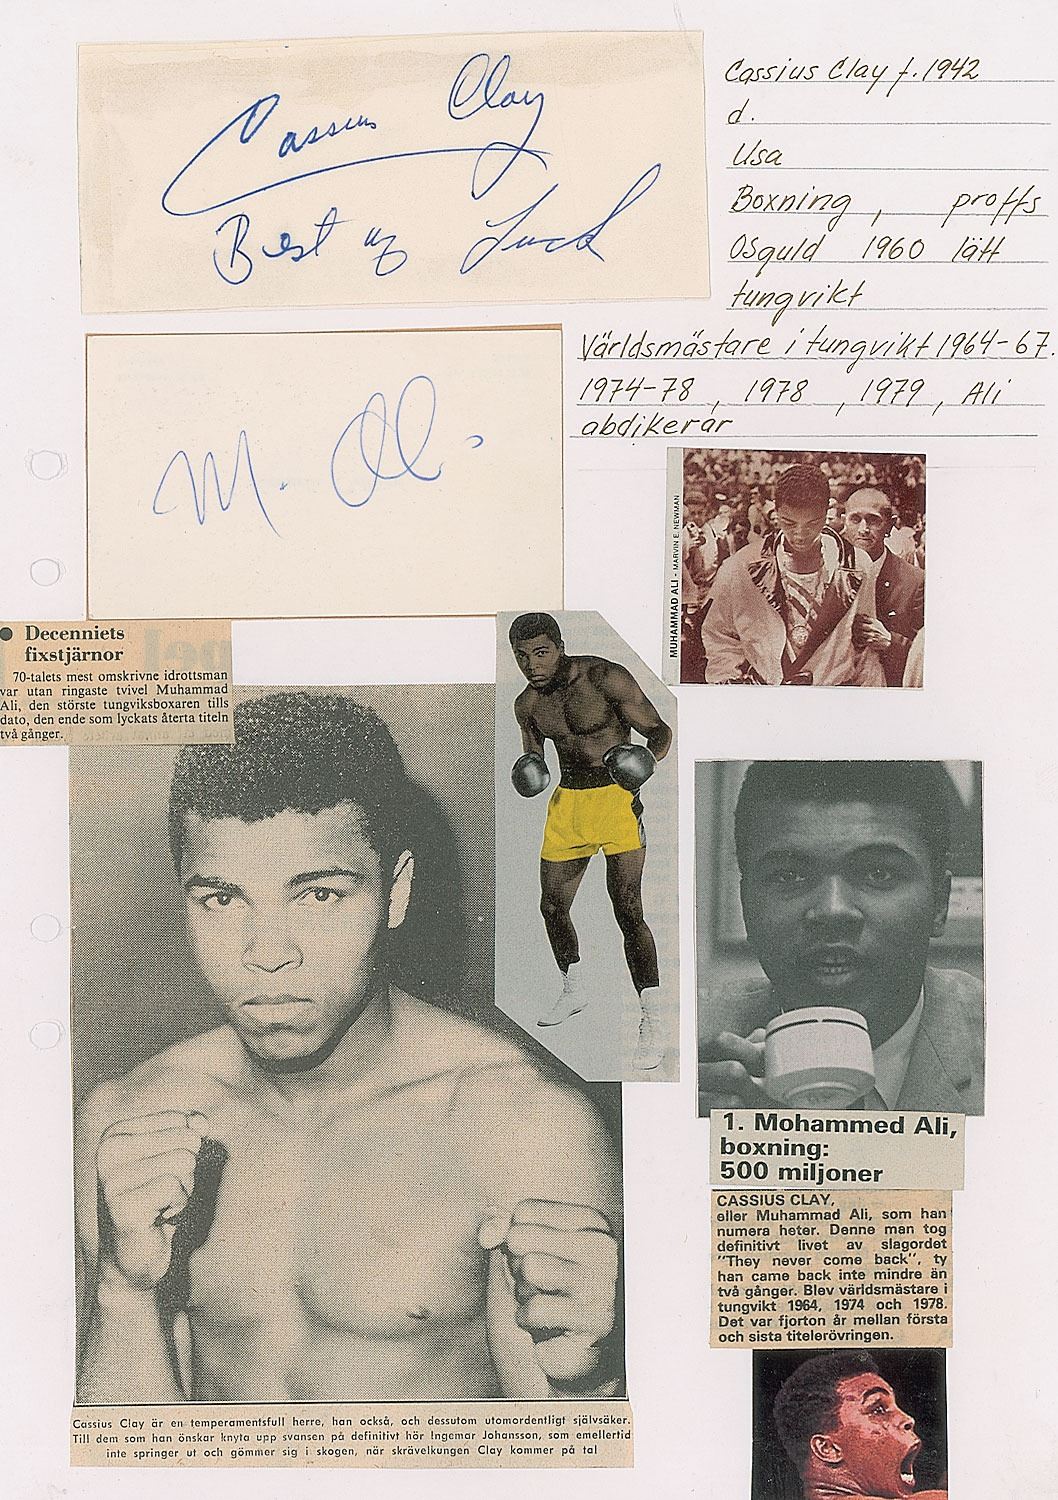 Cassius Clay
Best of Luck
Cassius Clay f. 1942
d.
Usa
Boxning, proffs
OSguld 1960 lätt
tungvikt
Världsmästare i tungvikt 1964-67.
1974-78, 1978, 1979, Ali
abdikerar
M. Ali
MUHAMMAD ALI - MARVIN E. NEWMAN
● Decenniets
fixstjärnor
70-talets mest omskrivne idrottsman
var utan ringaste tvivel Muhammad
Ali, den störste tungviksboxaren tills
dato, den ende som lyckats återta titeln
två gånger.
1. Mohammed Ali,
boxning:
500 miljoner
CASSIUS CLAY,
eller Muhammad Ali, som han
numera heter. Denne man tog
definitivt livet av slagordet
"They never come back", ty
han came back inte mindre än
två gånger. Blev världsmästare i
tungvikt 1964, 1974 och 1978.
Det var fjorton år mellan första
och sista titelerövringen.
Cassius Clay är en temperamentsfull herre, han också, och dessutom utomordentligt självsäker.
Till dem som han önskar knyta upp svansen på definitivt hör Ingemar Johansson, som emellertid
inte springer ut och gömmer sig i skogen, när skrävelkungen Clay kommer på tal